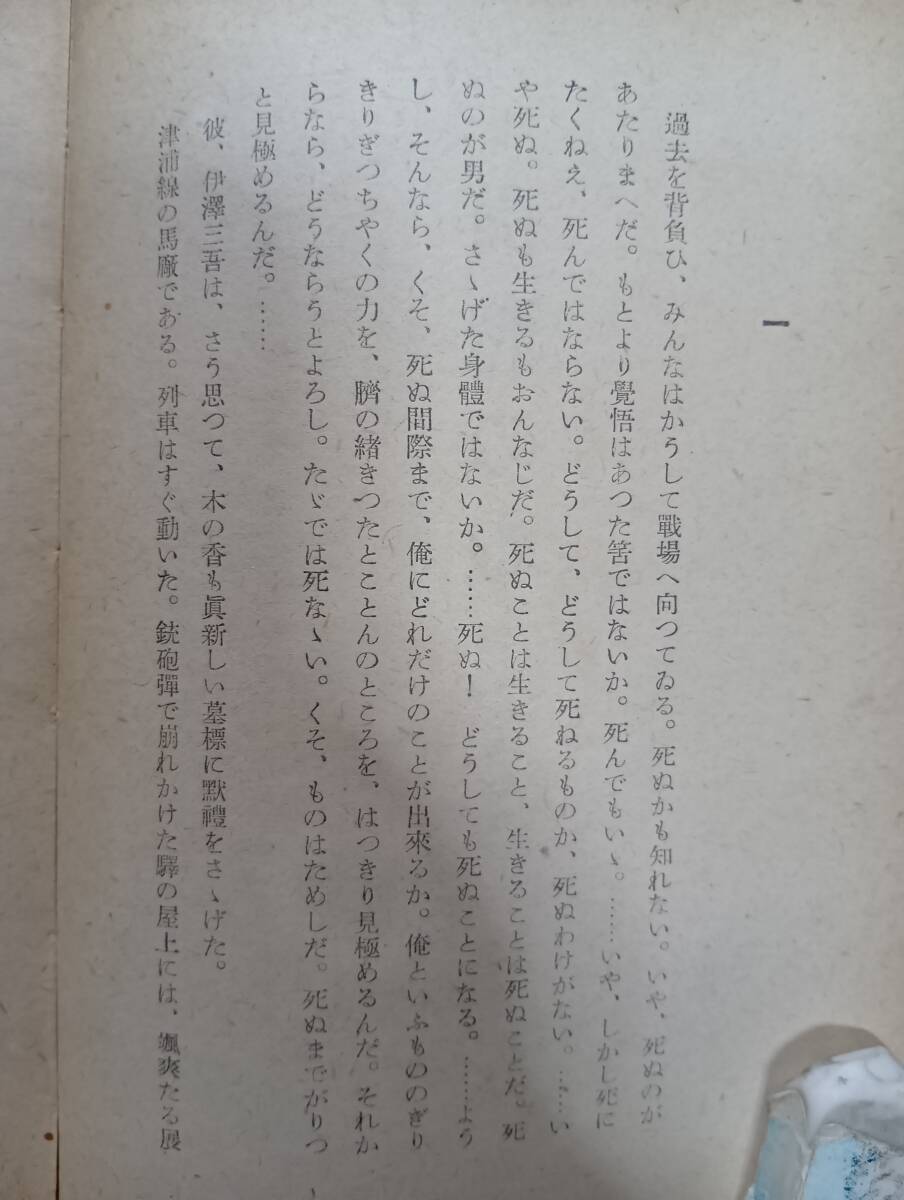 一
過去を背負ひ、みんなはかうして戰場へ向つてゐる。死ぬかも知れない。いや、死ぬのが
あたりまへだ。もとより覺悟はあつた筈ではないか。死んでもいゝ。……いや、しかし死に
たくねえ、死んではならない。どうして、どうして死ねるものか、死ぬわけがない。……い
や死ぬ。死ぬも生きるもおんなじだ。死ぬことは生きること、生きることは死ぬことだ。死
ぬのが男だ。さゝげた身體ではないか。……死ぬ！　どうしても死ぬことになる。……よう
し、そんなら、くそ、死ぬ間際まで、俺にどれだけのことが出來るか。俺といふもののぎり
きりぎつちやくの力を、臍の緒きつたとことんのところを、はつきり見極めるんだ。それか
らなら、どうならうとよろし。たゞでは死なゝい。くそ、ものはためしだ。死ぬまでがりつ
と見極めるんだ。……
彼、伊澤三吾は、さう思つて、木の香も眞新しい墓標に默禮をさゝげた。
津浦線の馬廠である。列車はすぐ動いた。銃砲彈で崩れかけた驛の屋上には、颯爽たる展